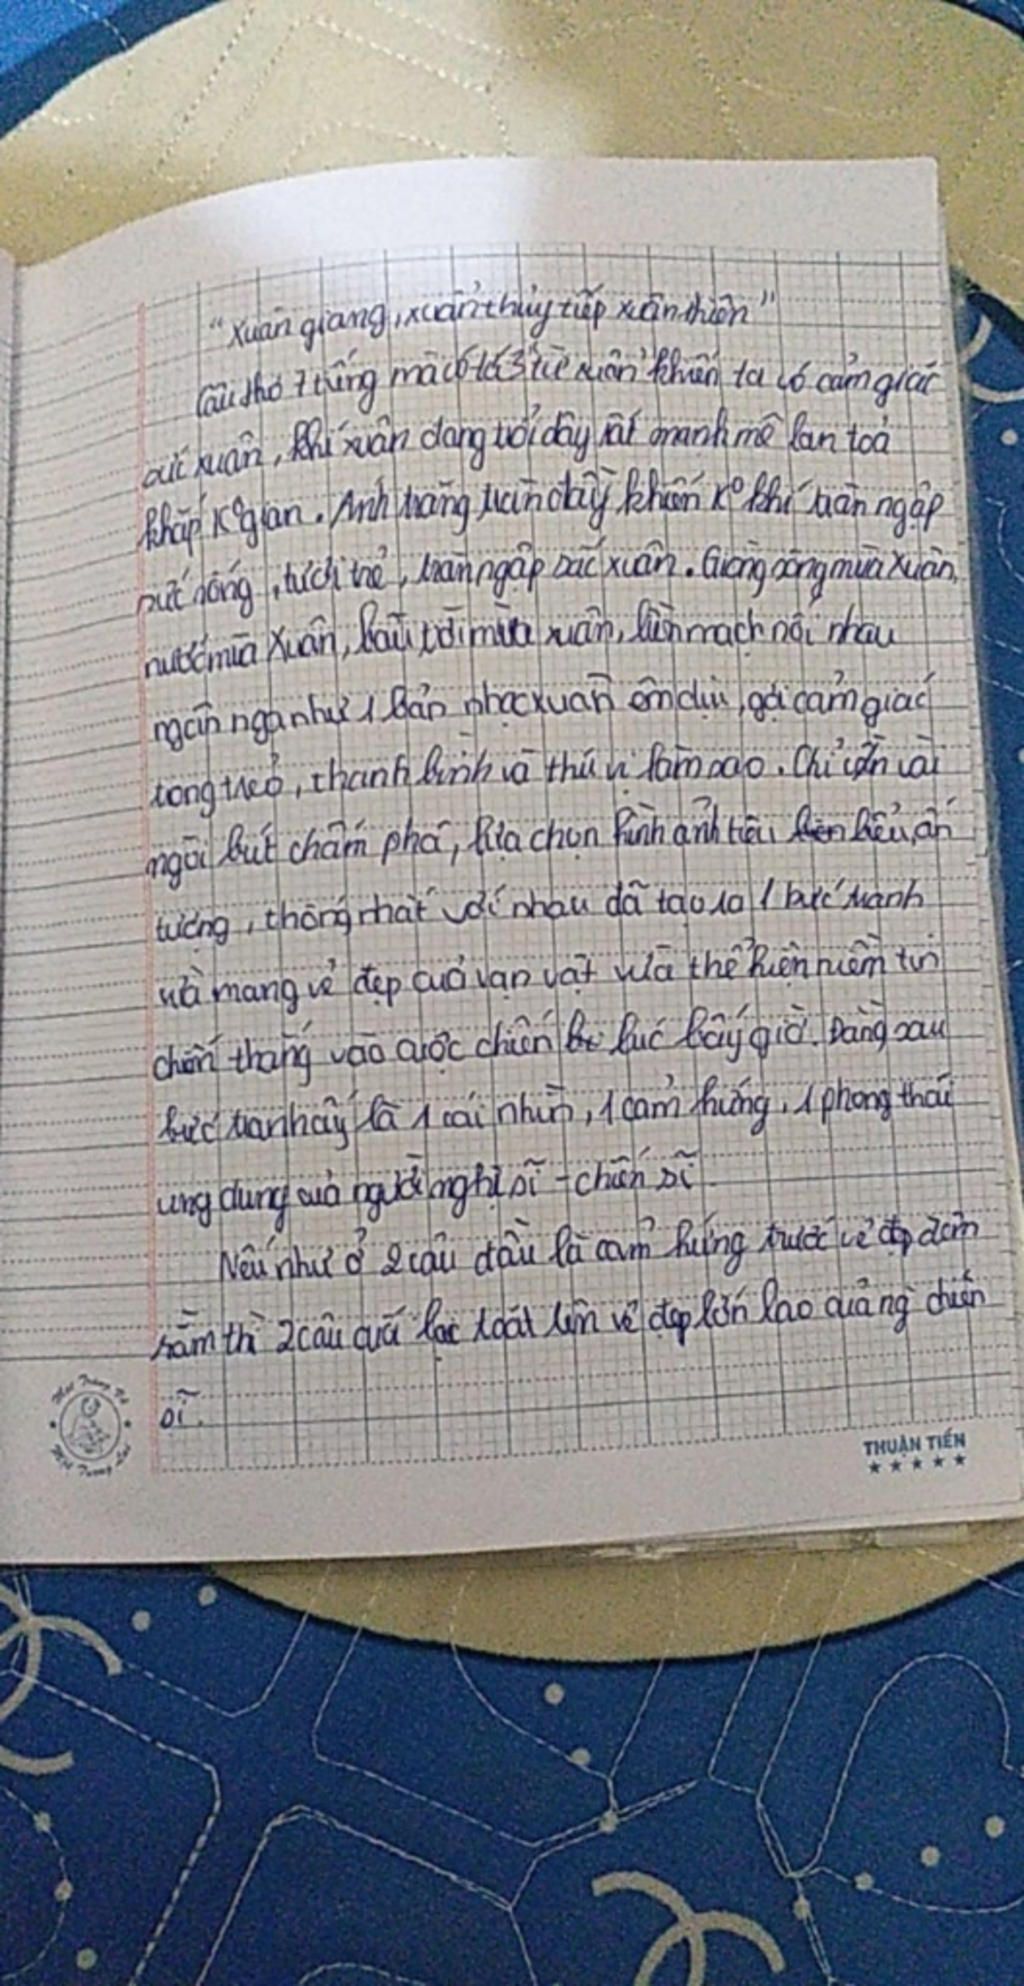 "Xuân giang, xuân thủy tiếp xuân thiên"
Câu thơ 7 tiếng mà có tới 3 từ xuân khiến ta có cảm giác
sức xuân, khí xuân đang trỗi dậy rất mạnh mẽ lan toả
khắp K° gian. Ánh trăng tràn đầy khiến K° khí tràn ngập
sức sống, tươi trẻ, tràn ngập sắc xuân. Giòng sông mùa xuân,
nước mùa xuân, bầu trời mùa xuân, liền mạch nối nhau
ngân nga như 1 bản nhạc xuân êm dịu, gợi cảm giác
trong trẻo, thanh bình và thú vị làm sao. Chỉ cần vài
ngòi bút chấm phá, lựa chọn hình ảnh tiêu biểu, ấn
tượng, thống nhất với nhau đã tạo ra 1 bức tranh
vừa mang vẻ đẹp của vạn vật vừa thể hiện niềm tin
chiến thắng vào cuộc chiến lúc bấy giờ. Đằng sau
bức tranh ấy là 1 cái nhìn, 1 cảm hứng, 1 phong thái
ung dung của người nghị sĩ - chiến sĩ
Nếu như ở 2 câu đầu là cảm hứng trước vẻ đẹp đêm
rằm thì 2 câu cuối lại toát lên vẻ đẹp lớn lao của ng chiến
sĩ.
THUẬN TIẾN